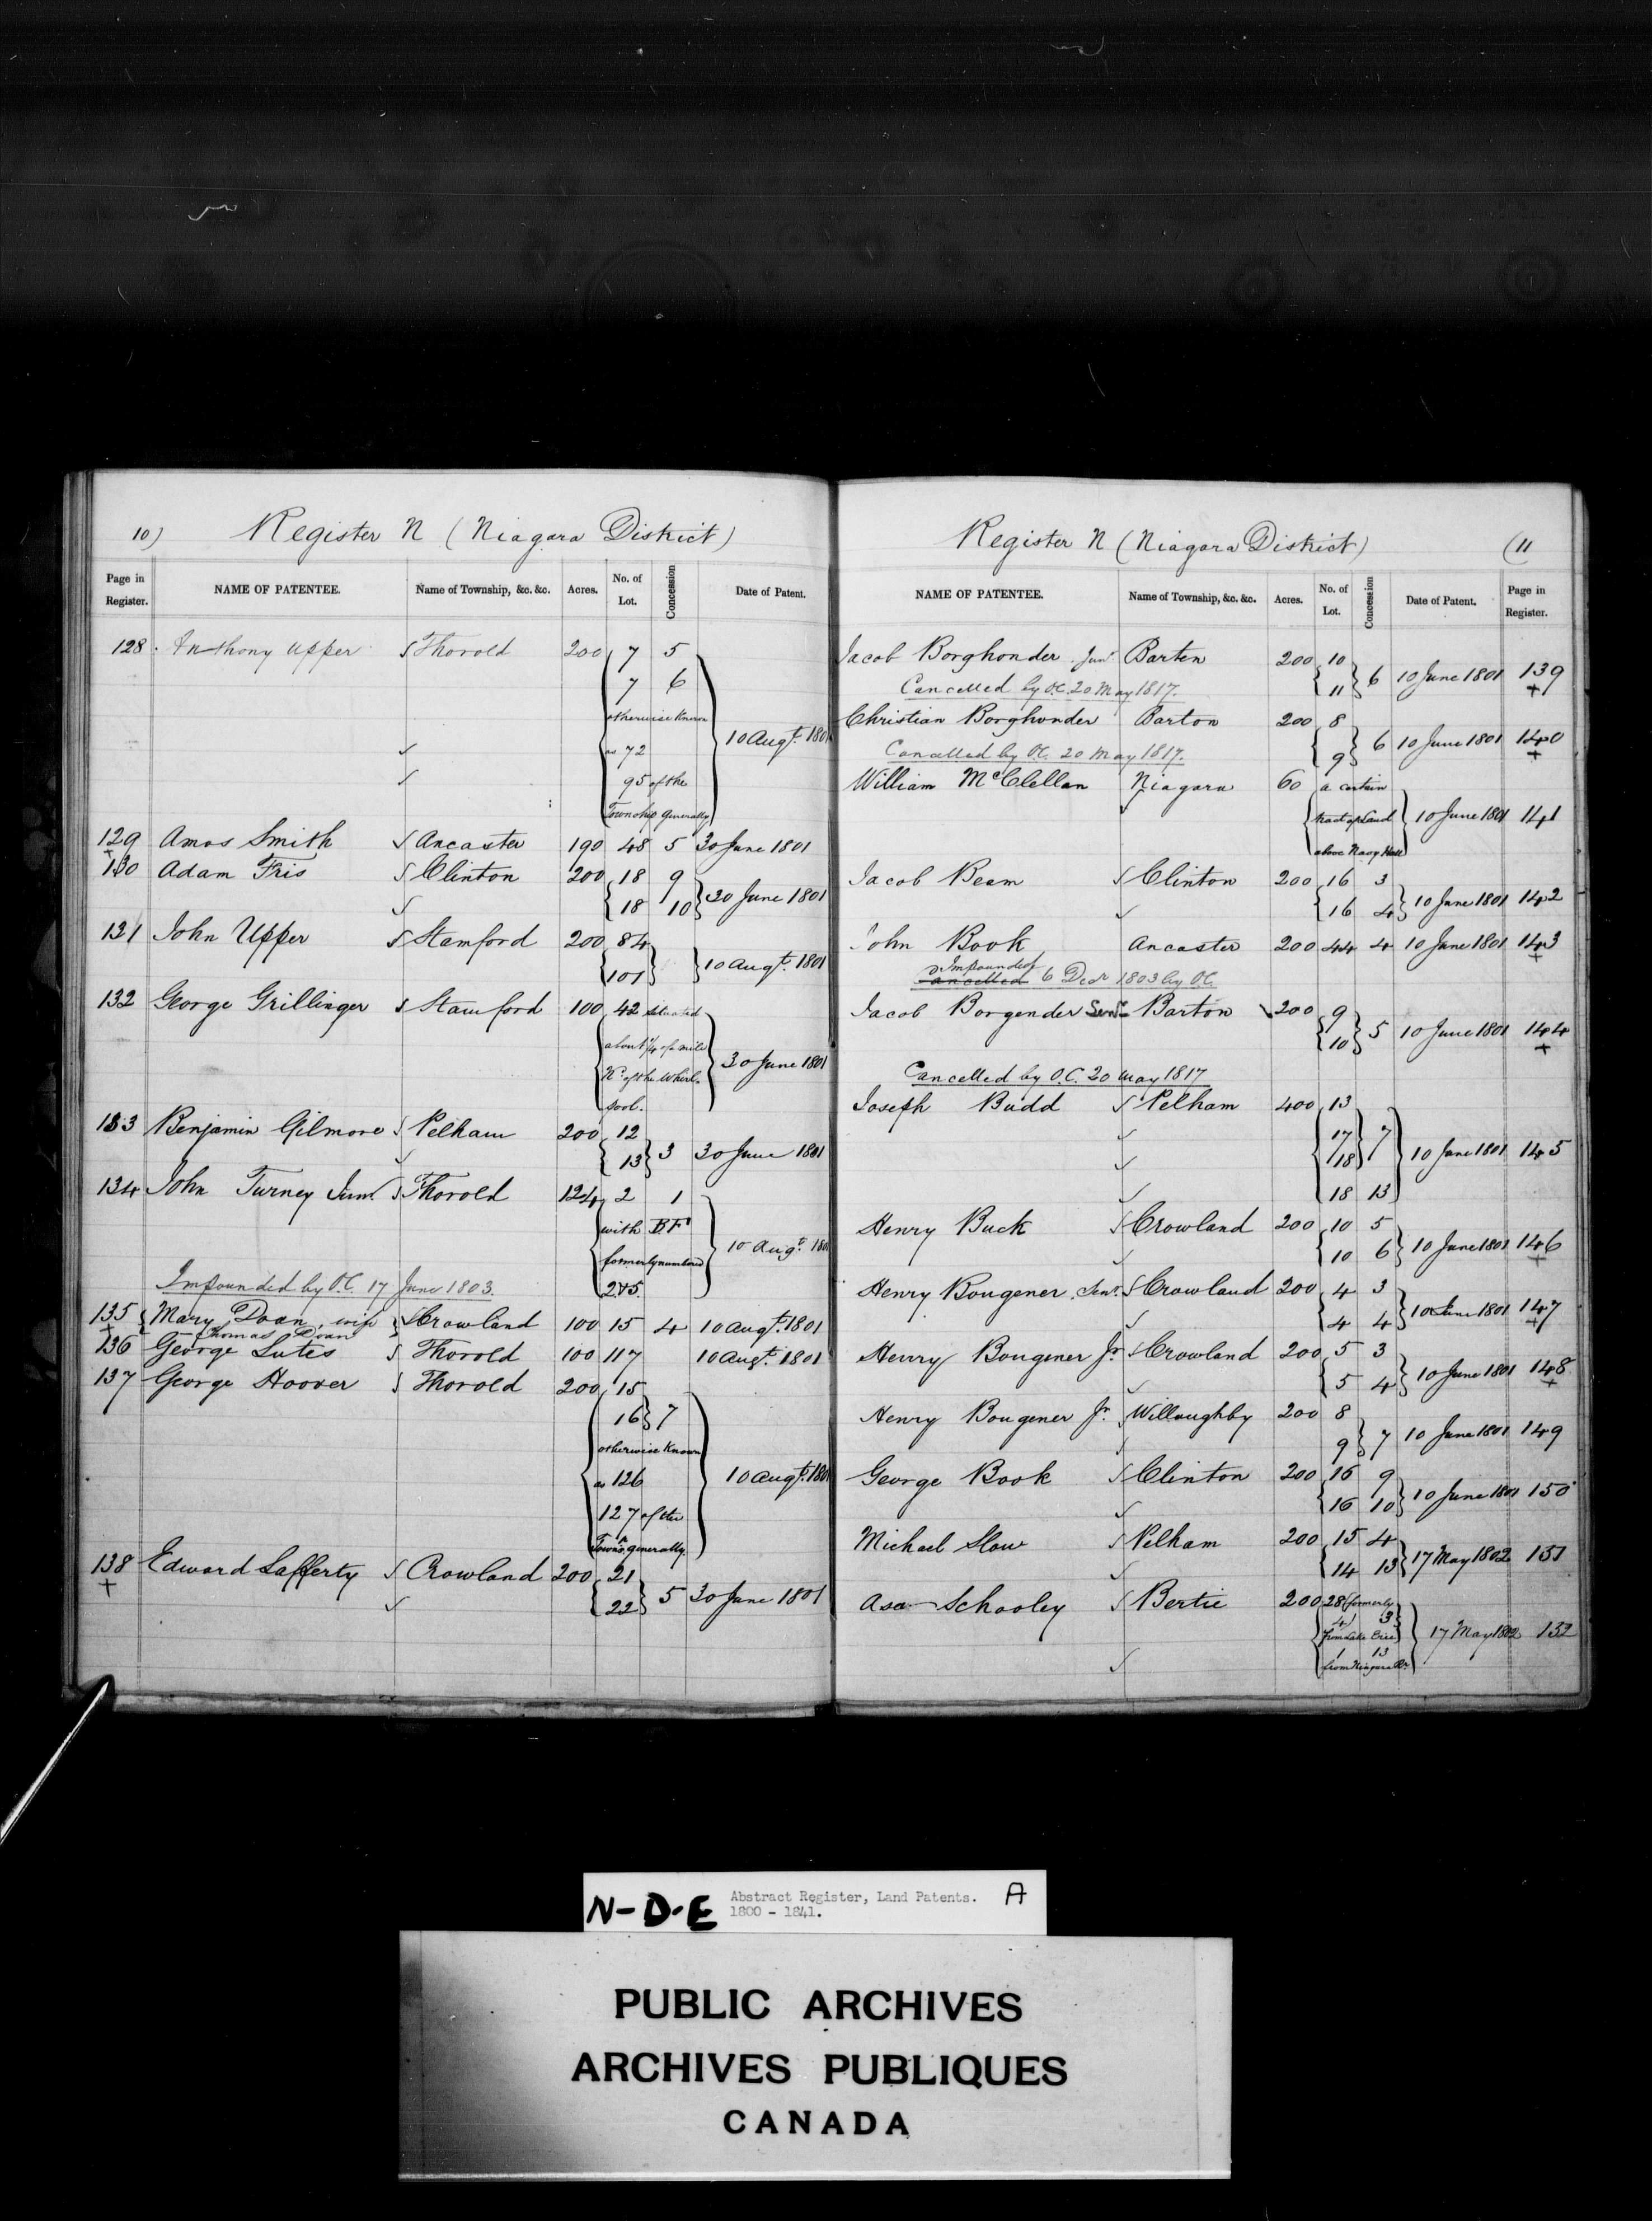 10) Register N (Niagara District)
Page in Register. NAME OF PATENTEE. Name of Township, &c. &c. Acres. No. of Lot. Concession Date of Patent.
128 Anthony Upper Thorold 200 7 5
7 6
otherwise known
as 72 10 Augt. 1801
95 of the
Township generally
129 Amos Smith Ancaster 190 48 5 30 June 1801
130 Adam Fris Clinton 200 18 9
18 10 30 June 1801
131 John Upper Stamford 200 84
101 10 Augt. 1801
132 George Grillinger Stamford 100 42 situated
about 1/4 of a mile
N. of the Whirl- 30 June 1801
pool.
133 Benjamin Gilmore Pelham 200 12
13 3 30 June 1801
134 John Turney Junr. Thorold 124 2 1
with B F
formerly numbered 10 Augt. 1801
2 & 5
Impounded by O.C. 17 June 1803.
135 Mary Doan, wife Crowland 100 15 4 10 Augt. 1801
Thomas Doan
136 George Lutes Thorold 100 117 10 Augt. 1801
137 George Hoover Thorold 200 15
16 7
otherwise known
as 126 10 Augt. 1801
127 of the
Town. generally
138 Edward Lafferty Crowland 200 21
22 5 30 June 1801
Register N (Niagara District) (11
NAME OF PATENTEE. Name of Township, &c. &c. Acres. No. of Lot. Concession Date of Patent. Page in Register.
Jacob Borghonder Junr Barton 200 10
11 6 10 June 1801 139
Cancelled by O.C. 20 May 1817.
Christian Borghonder Barton 200 8
9 6 10 June 1801 140
Cancelled by O.C. 20 May 1817.
William McClellan Niagara 60 a certain
tract of Land 10 June 1801 141
above Navy Hall
Jacob Beam Clinton 200 16 3
16 4 10 June 1801 142
John Book Ancaster 200 44 4 10 June 1801 143
Impounded
Cancelled 6 Decr 1803 by O.C.
Jacob Borgender Senr. Barton 200 9
10 5 10 June 1801 144
Cancelled by O.C. 20 May 1817
Joseph Budd Pelham 400 13
17 7
18 10 June 1801 145
18 13
Henry Buck Crowland 200 10 5
10 6 10 June 1801 146
Henry Bougener Senr. Crowland 200 4 3
4 4 10 June 1801 147
Henry Bougener Jr. Crowland 200 5 3
5 4 10 June 1801 148
Henry Bougener Jr. Willoughby 200 8
9 7 10 June 1801 149
George Book Clinton 200 16 9
16 10 10 June 1801 150
Michael Slow Pelham 200 15 4
14 13 17 May 1802 151
Asa Schooley Bertie 200 28 (formerly
4) 3
from Lake Erie 17 May 1802 152
1 13
from Niagara Rr.
N-D-E Abstract Register, Land Patents. A
1800 - 1841.
PUBLIC ARCHIVES
ARCHIVES PUBLIQUES
CANADA